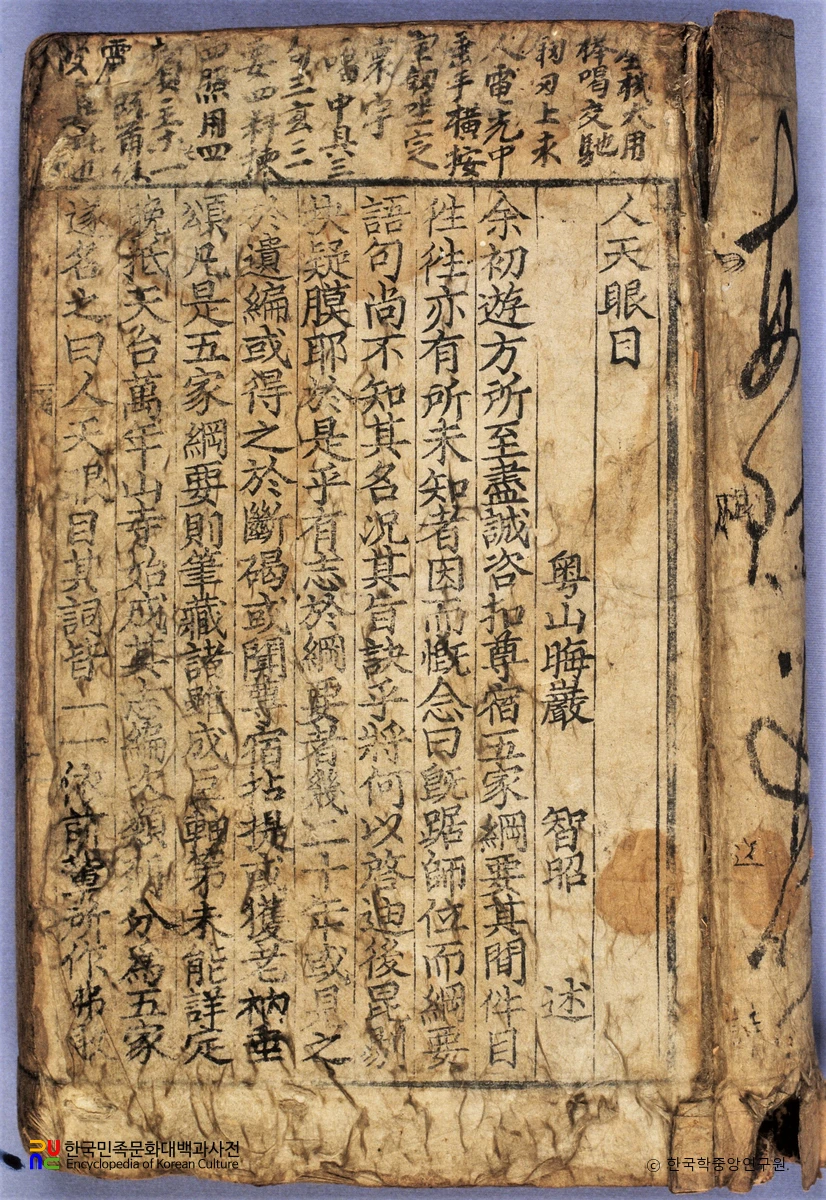 機大用
棒喝交馳
釰刃上求
人電光中
垂手橫按
釰坐定
寰宇
喝中具三
句三玄三
要四料揀
四照用四
賓主十一
人天眼目
粤山晦巖 智昭 述
余初遊方所至盡誠咨扣尊宿五家綱要其間件目
徃徃亦有所未知者因而慨念曰旣踞師位而綱要
語句尚不知其名况其旨訣乎將何以啓迪後昆剔
抉疑膜耶於是乎有志於綱要者幾二十年或見之
於遺編或得之於斷碣或聞尊宿拈提或獲老衲垂
頌凡是五家綱要則筆藏諸雖成巨軸第未能詳定
晚抵天台萬年山寺始成其志編次類列分爲五家
遂名之曰人天眼目其詞皆一一依前輩所作弗敢
한국민족문화대백과사전
Encyclopedia of Korean Culture
© 한국학중앙연구원.